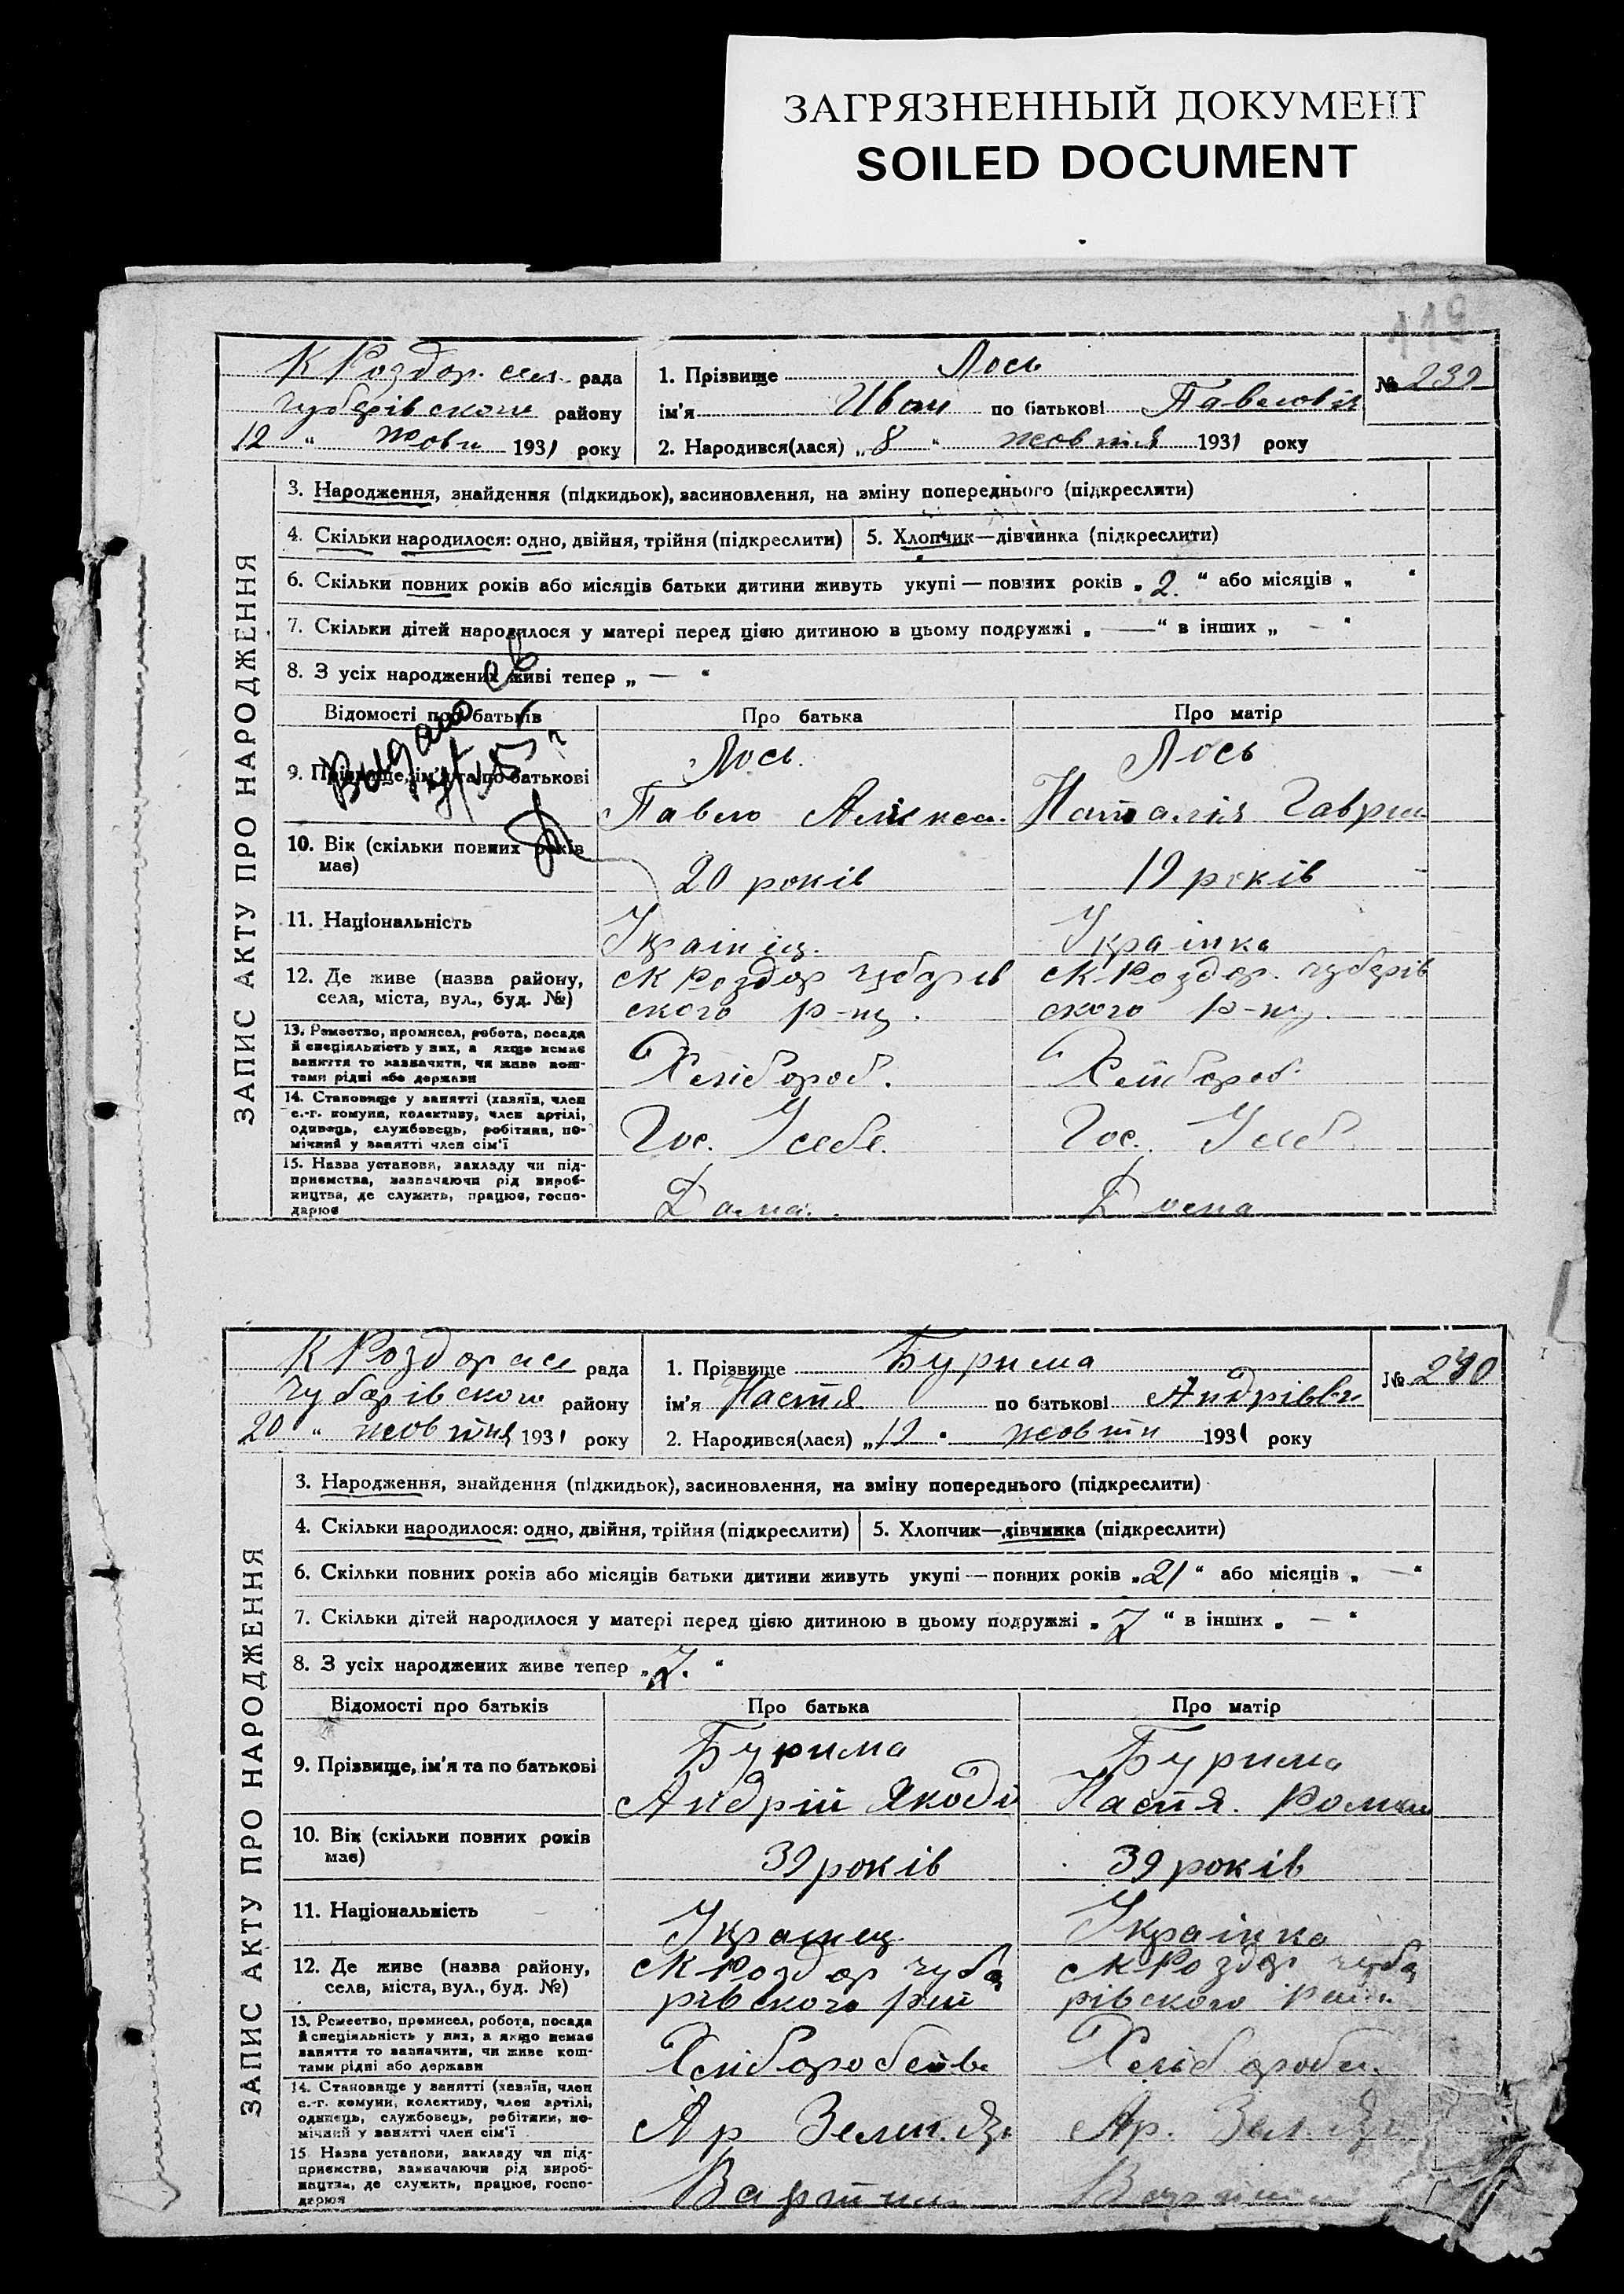 ЗАГРЯЗНЕННЫЙ ДОКУМЕНТ
SOILED DOCUMENT
119
К Роздор. сел. рада
Чубарівського району
12 " жовт 1931 року
1. Прізвище Лось
ім'я Иван по батькові Павлович
№ 239
2. Народився(лася) „8 " жовтня 1931 року
ЗАПИС АКТУ ПРО НАРОДЖЕННЯ
3. Народження, знайдення (підкидьок), засиновлення, на зміну попереднього (підкреслити)
4. Скільки народилося: одно, двійня, трійня (підкреслити) 5. Хлопчик—дівчинка (підкреслити)
6. Скільки повних років або місяців батьки дитини живуть укупі — повних років „ 2. “ або місяців „ “
7. Скільки дітей народилося у матері перед цією дитиною в цьому подружжі „ — “ в інших „ — “
8. З усіх народжених живі тепер „ — “
Відомості про батьків Про батька Про матір
9. Прізвище, ім'я та по батькові
Лось. Лось
Павло Наталія Гаври
10. Вік (скільки повних років має)
20 років 19 років
11. Національність
Українец. Українка
12. Де живе (назва району, села, міста, вул., буд. №)
с К Роздор Чубарів с К Роздор. Чубарів
ского р-ну. ского р-ну.
13. Ремество, промисел, робота, посада
й спеціяльність у них, а якщо немає
заняття то зазначити, чи живе кош-
тами рідні або держави
Хлібороб. Хлібороб.
14. Становище у занятті (хазяїн, член
с.-г. комуни, колективу, член артілі,
одинець, службовець, робітник, по-
мічний у занятті член сім'ї
Гос. У себе. Гос. У себ
15. Назва установи, закладу чи під-
приємства, зазначаючи рід вироб-
ництва, де служить, працює, госпо-
дарює
Дома. Дома
К Роздор сел рада
Чубарівського району
20 " жовтня 1931 року
1. Прізвище Бурима
ім'я Настя по батькові Андрівн
№ 240
2. Народився(лася) „12 " жовтн 1931 року
ЗАПИС АКТУ ПРО НАРОДЖЕННЯ
3. Народження, знайдення (підкидьок), засиновлення, на зміну попереднього (підкреслити)
4. Скільки народилося: одно, двійня, трійня (підкреслити) 5. Хлопчик—дівчинка (підкреслити)
6. Скільки повних років або місяців батьки дитини живуть укупі — повних років „21“ або місяців „ — “
7. Скільки дітей народилося у матері перед цією дитиною в цьому подружжі „ 7 “ в інших „ — “
8. З усіх народжених живе тепер „ 7. “
Відомості про батьків Про батька Про матір
9. Прізвище, ім'я та по батькові
Бурима Бурима
Андрій Якові Настя. Роман
10. Вік (скільки повних років має)
39 років 39 років
11. Національність
Українец Українка
12. Де живе (назва району, села, міста, вул., буд. №)
с К Роздор Чуба с К Роздор Чуба
рівского рай рівского рай
13. Ремество, промисел, робота, посада
й спеціяльність у них, а якщо немає
заняття то зазначити, чи живе кош-
тами рідні або держави
Хліборобств Хлібороб
14. Становище у занятті (хазяїн, член
с.-г. комуни, колективу, член артілі,
одинець, службовець, робітник, по-
мічний у занятті член сім'ї
Ар Ар.
15. Назва установи, закладу чи під-
приємства, зазначаючи рід вироб-
ництва, де служить, працює, госпо-
дарює